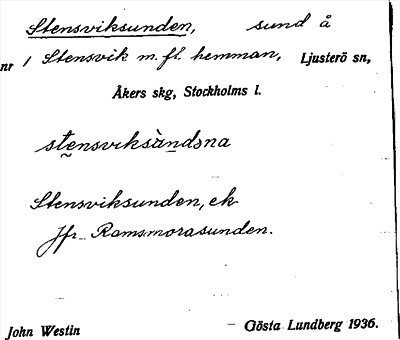 Stensviksunden, sund å
nr 1 Stensvik m. fl. hemman, Ljusterö sn,
Åkers skg, Stockholms l.
Stensviksunden, ek.
Jfr Ramsmorasunden.
John Westin – Gösta Lundberg 1936.